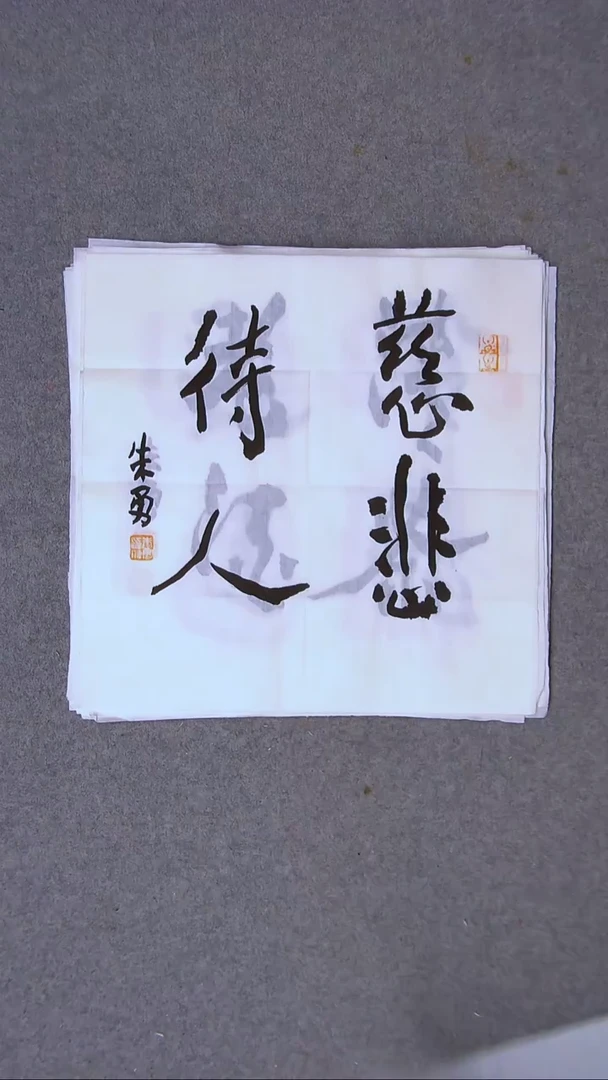 慈悲
待人
朱勇